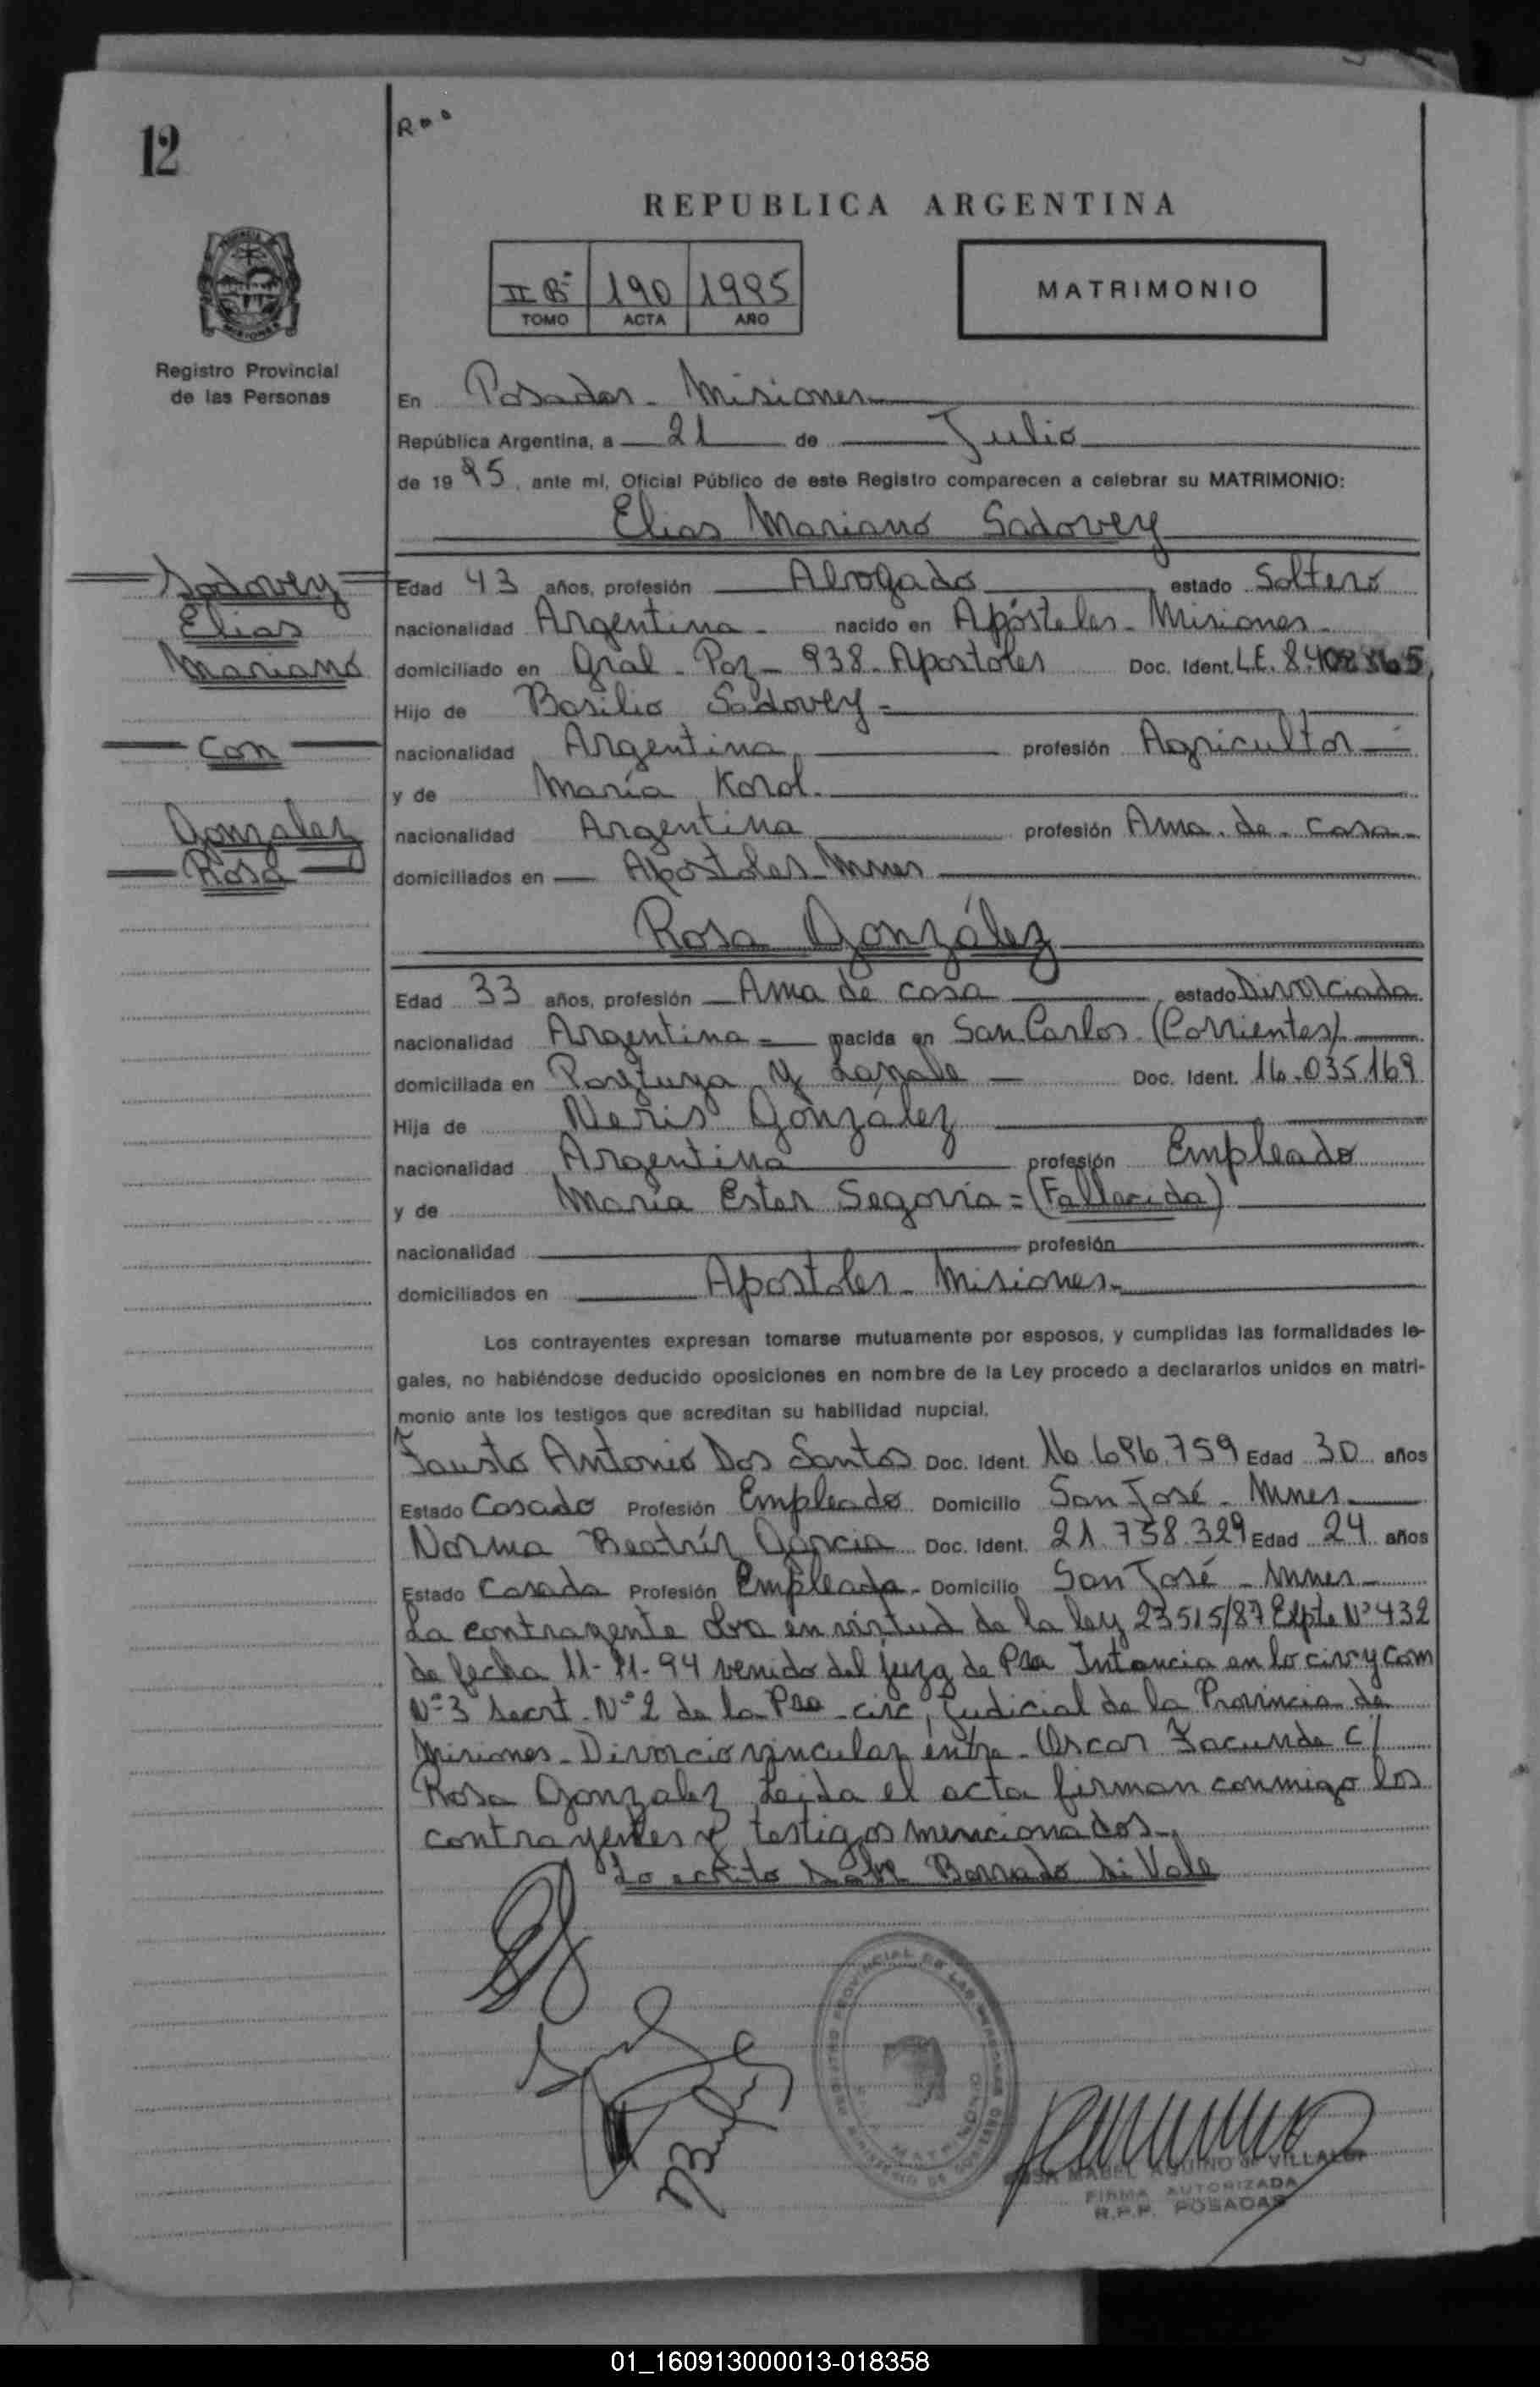 12
REPUBLICA ARGENTINA
II Bº 190 1995
TOMO ACTA AÑO
MATRIMONIO
Registro Provincial
de las Personas
En Posadas - Misiones
República Argentina, a 21 de Julio
de 1995, ante mí, Oficial Público de este Registro comparecen a celebrar su MATRIMONIO:
Elias Mariano Sadovey
Sadovey
Elias
Mariano
con
Gonzalez
Rosa
Edad 43 años, profesión Abogado estado Soltero
nacionalidad Argentina - nacido en Apóstoles - Misiones -
domiciliado en Gral - Paz - 938 - Apostoles Doc. Ident. L.E. 8.408365
Hijo de Basilio Sadovey =
nacionalidad Argentina profesión Agricultor
y de María Korol.
nacionalidad Argentina profesión Ama de casa
domiciliados en Apostoles Mnes
Rosa González
Edad 33 años, profesión Ama de casa estado Divorciada
nacionalidad Argentina = nacida en San Carlos (Corrientes)
domiciliada en y Doc. Ident. 16.035.169
Hija de Neris González
nacionalidad Argentina profesión Empleado
y de María Ester Segovia = (Fallecida)
nacionalidad profesión
domiciliados en Apostoles - Misiones -
Los contrayentes expresan tomarse mutuamente por esposos, y cumplidas las formalidades le-
gales, no habiéndose deducido oposiciones en nombre de la Ley procedo a declararlos unidos en matri-
monio ante los testigos que acreditan su habilidad nupcial.
Fausto Antonio Dos Santos Doc. Ident. 16.696.759 Edad 30 años
Estado Casado Profesión Empleado Domicilio San José - Mnes
Norma Beatríz García Doc. Ident. 21.738.329 Edad 24 años
Estado Casada Profesión Empleada - Domicilio San José - Mnes -
La contrayente en virtud de la ley 23515/87 Expte Nº 432
de fecha 11-11-94 venido del juzg de Pra Intancia en lo civ y com
Nº 3 Secrt. Nº 2 de la Pra circ, judicial de la Provincia de
Misiones - Divorcio vincular entre - Oscar Facundo c/
Rosa Gonzalez Leida el acta firman conmigo los
contrayentes y testigos mencionados -
Lo ecrito Sobre Borrado Si Vale
ROSA MABEL AQUINO de VILLALBA
FIRMA AUTORIZADA
R.P.P. POSADAS
01_160913000013-018358